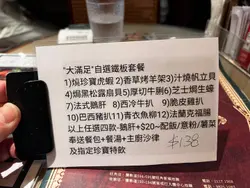 "大滿足"自選鐵板套餐
1)焗珍寶虎蝦 2)香草烤羊架3)汁燒帆立貝
4)焗黑松露扇貝5)厚切牛脷6)芝士焗生蠔
7)法式鵝肝 8)西冷牛扒 9)脆皮雞扒
10)巴西豬扒11)青衣魚柳12)法蘭克福腸
以上任選四款-鵝肝+$20~配飯/意粉/薯菜
奉送餐包+餐湯+主廚沙律
及指定珍寶特飲 $138